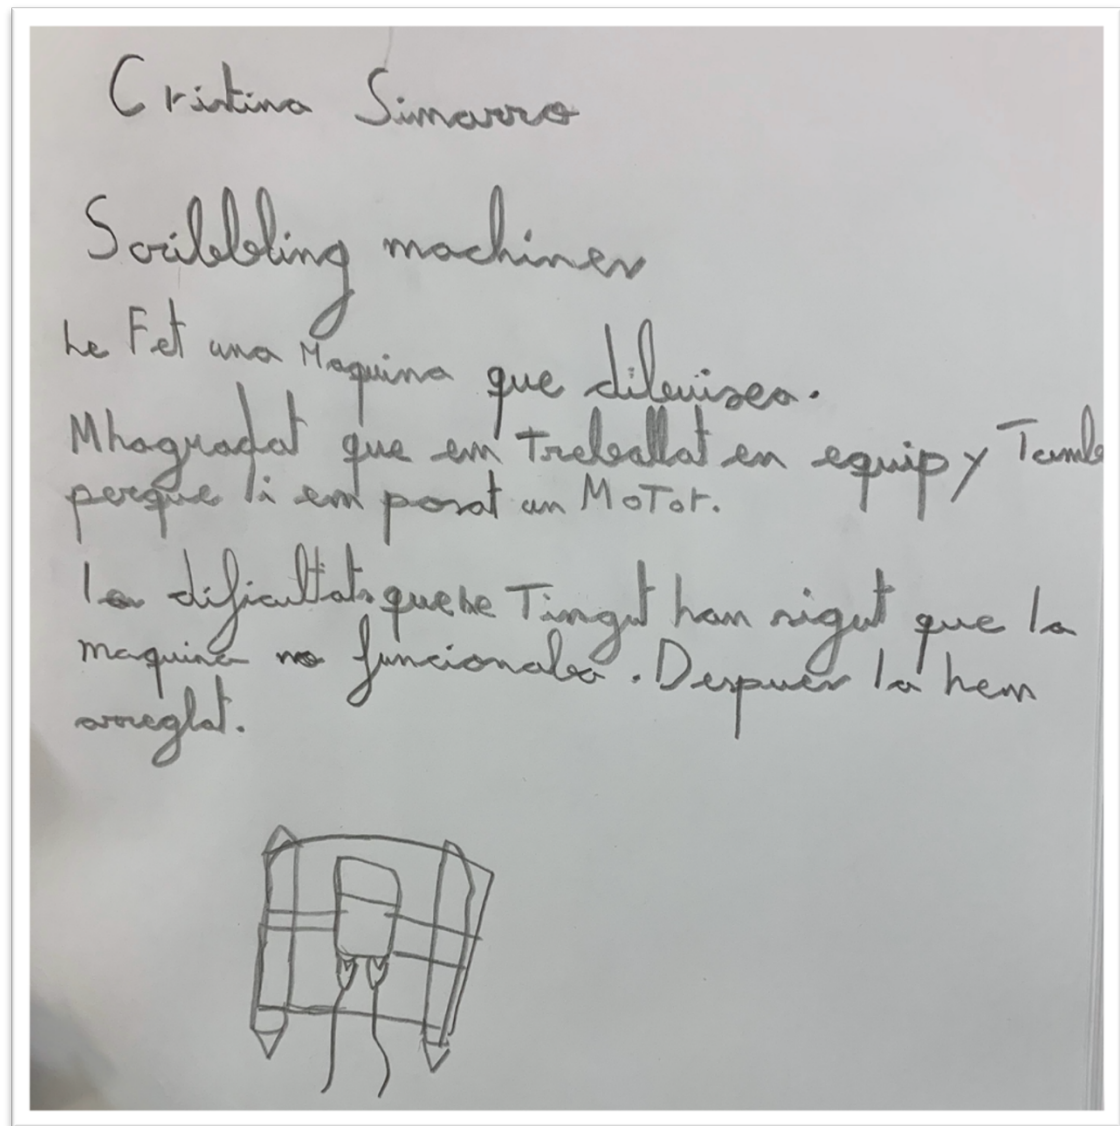 Cristina Simarro
Scribbling machines
he Fet una Maquina que dibuixea.
Mhagradat que em Treballat en equip y Tambe
perque li em posat un MoTor.
les dificultats que he Tingut han sigut que la
maquina no funcionaba. Despues la hem
arreglat.